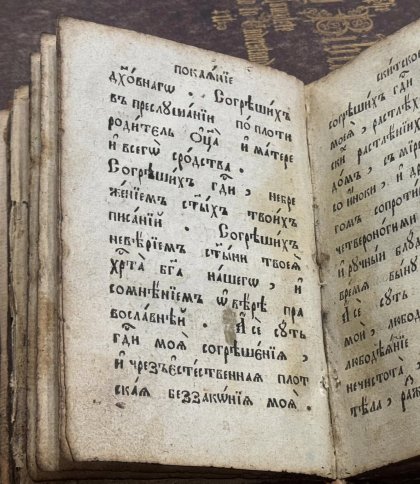 покаѧ́нїе
дх҃о́внагѡ . Согрѣши́хъ
въ преслꙋшанїи по пло́ти
роди́тель Ѻц҃а̀ и҆ ма́тере
и҆ всегѡ̀ сро́дства .
Согрѣши́хъ гдⷭ҇и , небре
же́нїемъ ст҃ы́хъ твои́хъ
писанїй . Согрѣши́хъ
невѣ́рїемъ ст҃ы́ни твоеѧ̀
хрⷭ҇та̀ бг҃а на́шегѡ , и҆
сомнѣ́нїемъ ѡ҆ вѣ́рѣ пра
восла́внѣй . А҆ сѐ сꙋ́ть
гдⷭ҇и моѧ̀ согрѣше́нїѧ ,
и҆ чрезъесте́ственнаѧ плот
ска́ѧ беззакѡ́нїѧ моѧ̀ .
скитское
согрѣши́хъ гдⷭ҇и
моеѧ̀ , растлѣ
скїи растлѣнї
до́мъ , съ мїр
со и҆́ноки , и҆ д
гомъ сопроти
четвероно́гими
и҆ рꙋ́чный блꙋ́д
время бы́нꙋ
А҆ сѐ сꙋ́ть
мои̑ , любод
любодѣѧ́нїе
нечистота̀ ,
тѣ́ла , раж